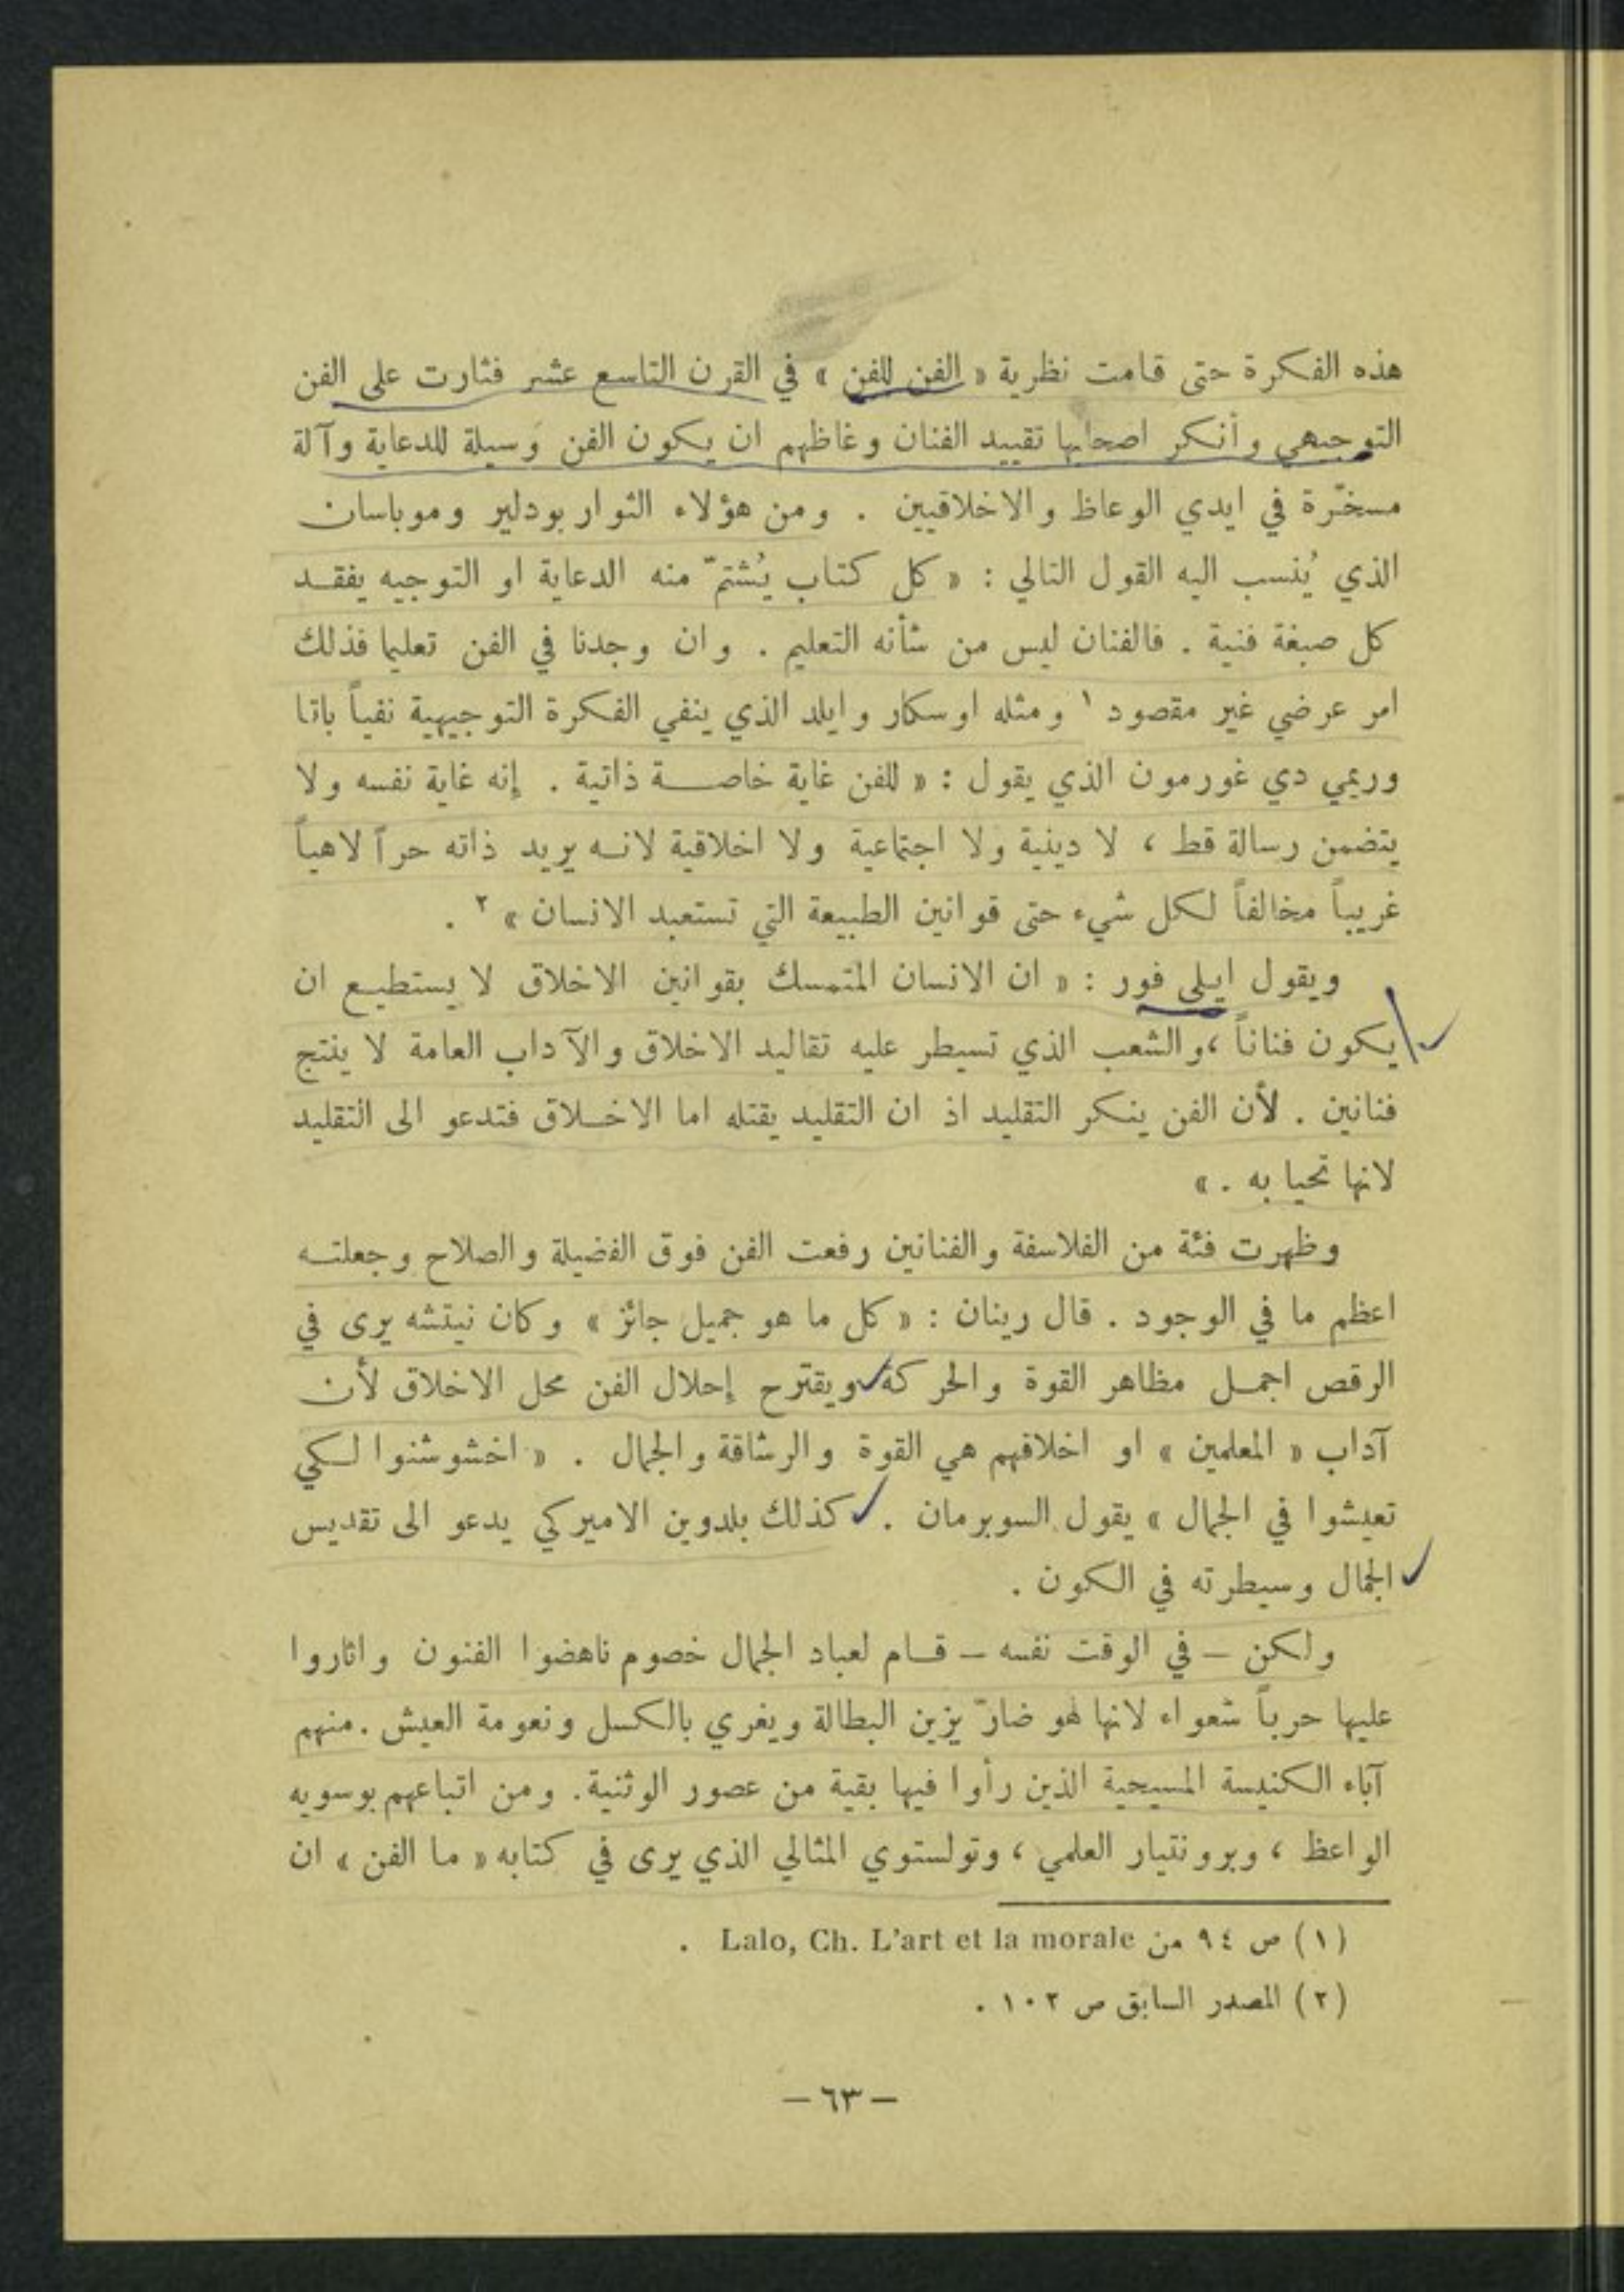 هذه الفكرة حتى قامت نظرية « الفن للفن » في القرن التاسع عشر فثارت على الفن
التوجيهي وأنكر اصحابها تقييد الفنان وغاظهم ان يكون الفن وسيلة للدعاية وآلة
مسخّرة في ايدي الوعاظ والاخلاقيين . ومن هؤلاء الثوار بودلير وموباسان
الذي يُنسب اليه القول التالي : « كل كتاب يُشتمّ منه الدعاية او التوجيه يفقد
كل صبغة فنية . فالفنان ليس من شأنه التعليم . وان وجدنا في الفن تعليما فذلك
امر عرضي غير مقصود ١ ومثله اوسكار وايلد الذي ينفي الفكرة التوجيهية نفياً باتا
وريمي دي غورمون الذي يقول : « للفن غاية خاصة ذاتية . إنه غاية نفسه ولا
يتضمن رسالة قط ، لا دينية ولا اجتماعية ولا اخلاقية لانه يريد ذاته حراً لاهياً
غريباً مخالفاً لكل شيء حتى قوانين الطبيعة التي تستعبد الانسان » ٢ .
ويقول ايلي فور : « ان الانسان المتمسك بقوانين الاخلاق لا يستطيع ان
يكون فناناً ، والشعب الذي تسيطر عليه تقاليد الاخلاق والآداب العامة لا ينتج
فنانين . لأن الفن ينكر التقليد اذ ان التقليد يقتله اما الاخلاق فتدعو الى التقليد
لانها تحيا به . »
وظهرت فئة من الفلاسفة والفنانين رفعت الفن فوق الفضيلة والصلاح وجعلته
اعظم ما في الوجود . قال رينان : « كل ما هو جميل جائز » وكان نيتشه يرى في
الرقص اجمل مظاهر القوة والحركة ويقترح إحلال الفن محل الاخلاق لأن
آداب « المعلمين » او اخلاقهم هي القوة والرشاقة والجمال . « اخشوشنوا لكي
تعيشوا في الجمال » يقول السوبرمان . كذلك بلدوين الاميركي يدعو الى تقديس
الجمال وسيطرته في الكون .
ولكن – في الوقت نفسه – قام لعباد الجمال خصوم ناهضوا الفنون واثاروا
عليها حرباً شعواء لانها لهو ضارّ يزين البطالة ويغري بالكسل ونعومة العيش . منهم
آباء الكنيسة المسيحية الذين رأوا فيها بقية من عصور الوثنية. ومن اتباعهم بوسويه
الواعظ ، وبرونتيار العلمي ، وتولستوي المثالي الذي يرى في كتابه « ما الفن » ان
(١) ص ٩٤ من Lalo, Ch. L'art et la morale .
(٢) المصدر السابق ص ١٠٢ .
– ٦٣ –